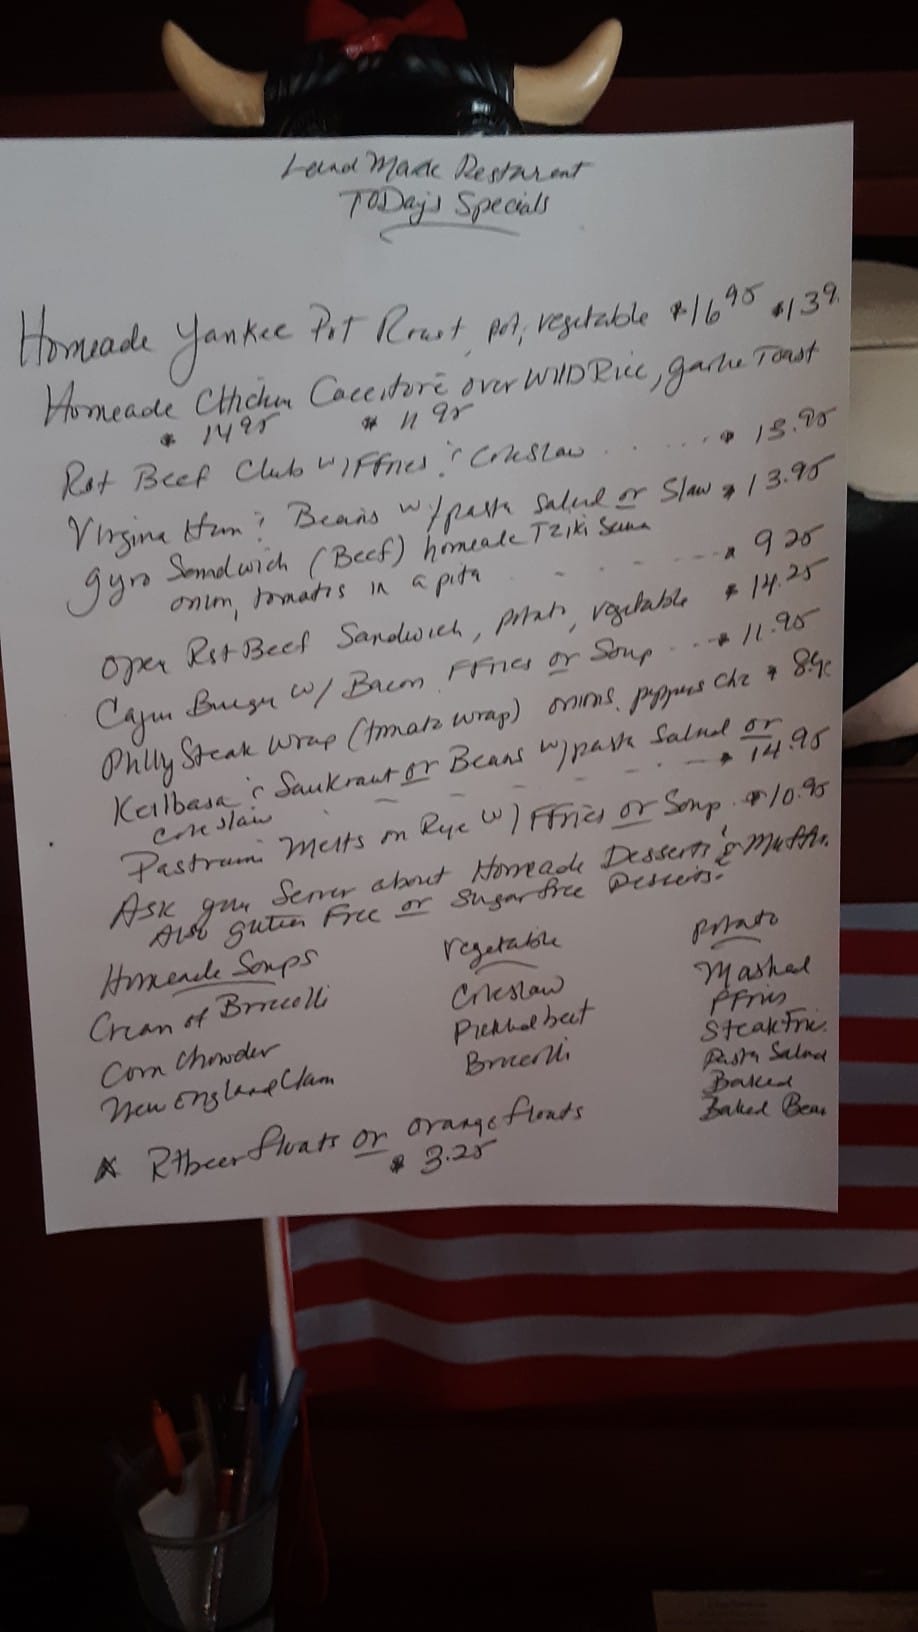 Land Mark Resturent
TODay's Specials
Homeade Yankee Pot Roast, pot, vegetable $16 95 $13 9
Homeade Chicken Caccitore over WilD Rice, garlic Toast
$ 14 95 $ 11 95
Rst Beef Club w/ FFries & Coleslaw ...... $ 13.95
Virgina Ham & Beans w/ pasta salad or Slaw $ 13.95
gyro Sandwich (Beef) homeade Tziki
onion, tomatos in a pita - - - - $ 9 25
open Rst Beef Sandwich, potato, vegetable $ 14.25
Cajun Burger w/ Bacon FFries or Soup ... $ 11.95
Philly Steak Wrap (tomato wrap) onions, peppers Chz $ 8.9
Keilbasa & Saukraut or Beans w/ pasta Salad or
Coleslaw - - - - - - $ 14.95
Pastrami Melts on Rye w/ FFries or Soup. $10.95
Ask your Server about Homeade Desserts & Muffin.
Also gluten Free or Sugar free Desserts.
Homeade Soups vegetable potato
Cream of Broccolli Coleslaw Mashed
Corn Chowder Pickled beet FFries
New England Clam Broccolli Steak Frie.
Pasta Salad
Baked
Baked Bean
* Rtbeer floats or orange floats
$ 3.25